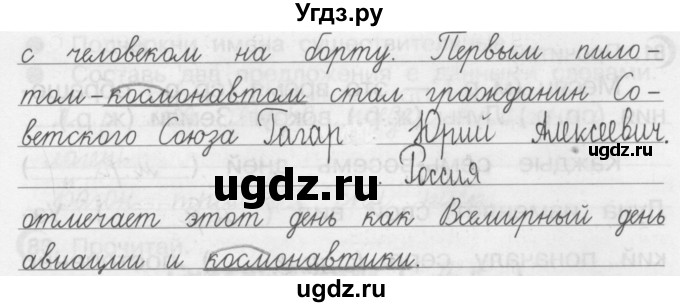 Угдз.ру
с человеком на борту. Первым пило-
том-космонавтом стал гражданин Со-
ветского Союза Гагар Юрий Алексеевич.
. Россия
ugdz.ru
отмечает этот день как Всемирный день
ugdz.ru
авиации и космонавтики.
ugdz.ru